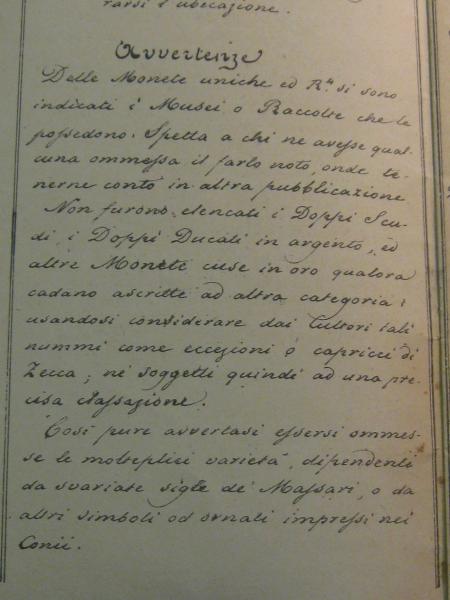 rarsi l'ubicazione.
Avvertenze
Delle Monete uniche ed R.4 si sono
indicati i Musei o Raccolte che le
possedono. Spetta a chi ne avesse qual-
cuna ommessa il farlo noto, onde te-
nerne conto in altra pubblicazione
Non furono elencati i Doppi Scu-
di, i Doppi Ducati in argento, ed
altre Monete cuse in oro qualora
cadano ascritte ad altra categoria;
usandosi considirare dai Cultori tali
nummi come eccezioni o capricci di
Zecca; né soggetti quindi ad una pre-
cisa tassazione.
Così pure avvertasi essersi ommes-
se le molteplici varietà, dipendenti
da svariate sigle de' Massari, o da
altri simboli od ornati impressi nei
Conii.